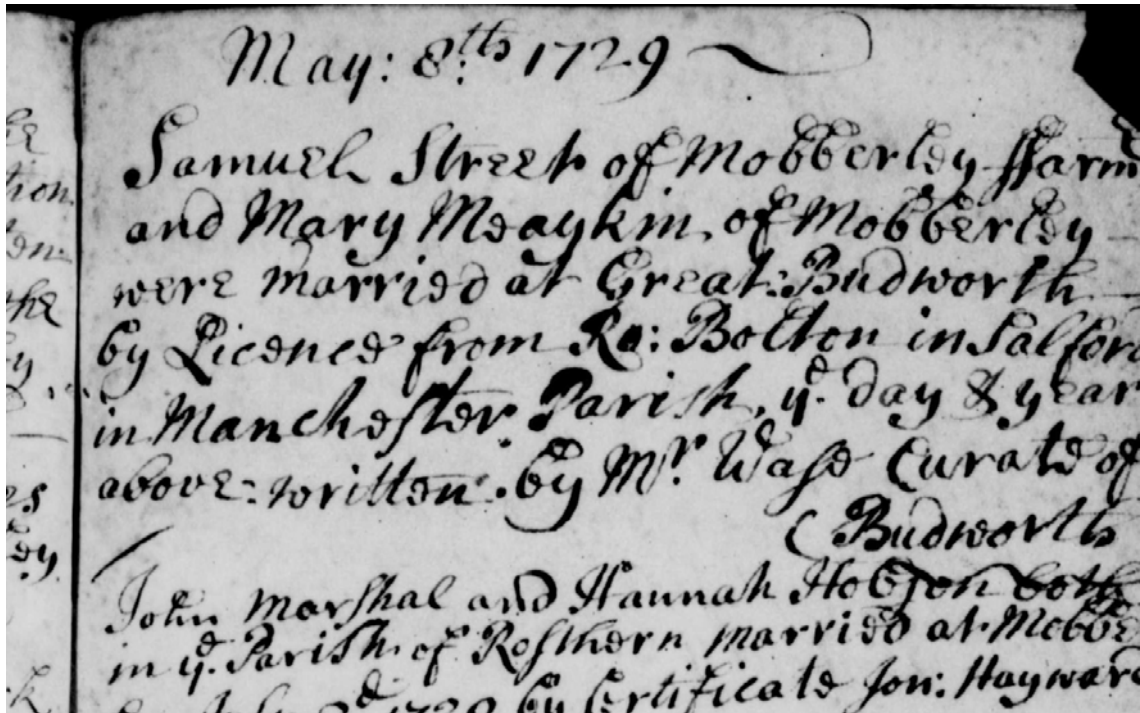 May: 8th 1729
Samuel Street of Mobberley ffarm
and Mary Meaykin of Mobberley
were married at Great: Budworth
by Licence from Ra: Bolton in Salford
in Manchester Parish, ye. day & year
above: written. by Mr. Wase Curate of
( Budworth
John Marshal and Hannah Hobson both
in ye. Parish of Rosthern married at Mobbe
1729 By Certificate Jon: Hayward